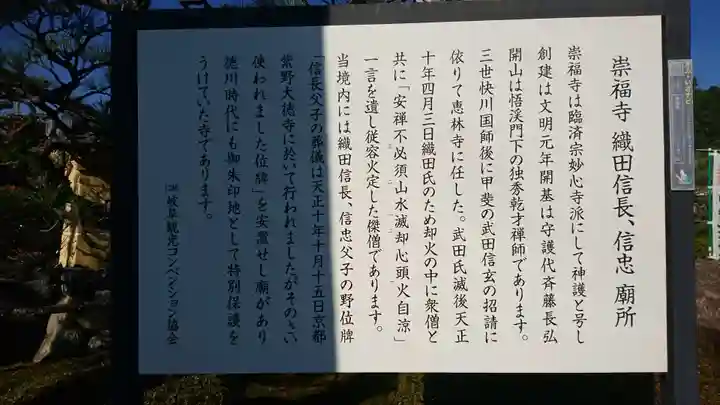 崇福寺 織田信長、信忠 廟所
崇福寺は臨済宗妙心寺派にして神護と号し
創建は文明元年開基は守護代斉藤長弘
開山は悟渓門下の独秀乾才禅師であります。
三世快川国師後に甲斐の武田信玄の招請に
依りて恵林寺に任した。武田氏滅後天正
十年四月三日織田氏のため却火の中に衆僧と
共に「安禅不必須山水滅却心頭火自凉」
一言を遺し従容火定した傑僧であります。
当境内には織田信長、信忠父子の野位牌
「信長父子の葬儀は天正十年十月十五日京都
紫野大徳寺に於いて行われましたがそのさい
使われました位牌」を安置せし廟があり
徳川時代にも御朱印地として特別保護を
うけていた寺であります。
㈶岐阜観光コンベンション協会